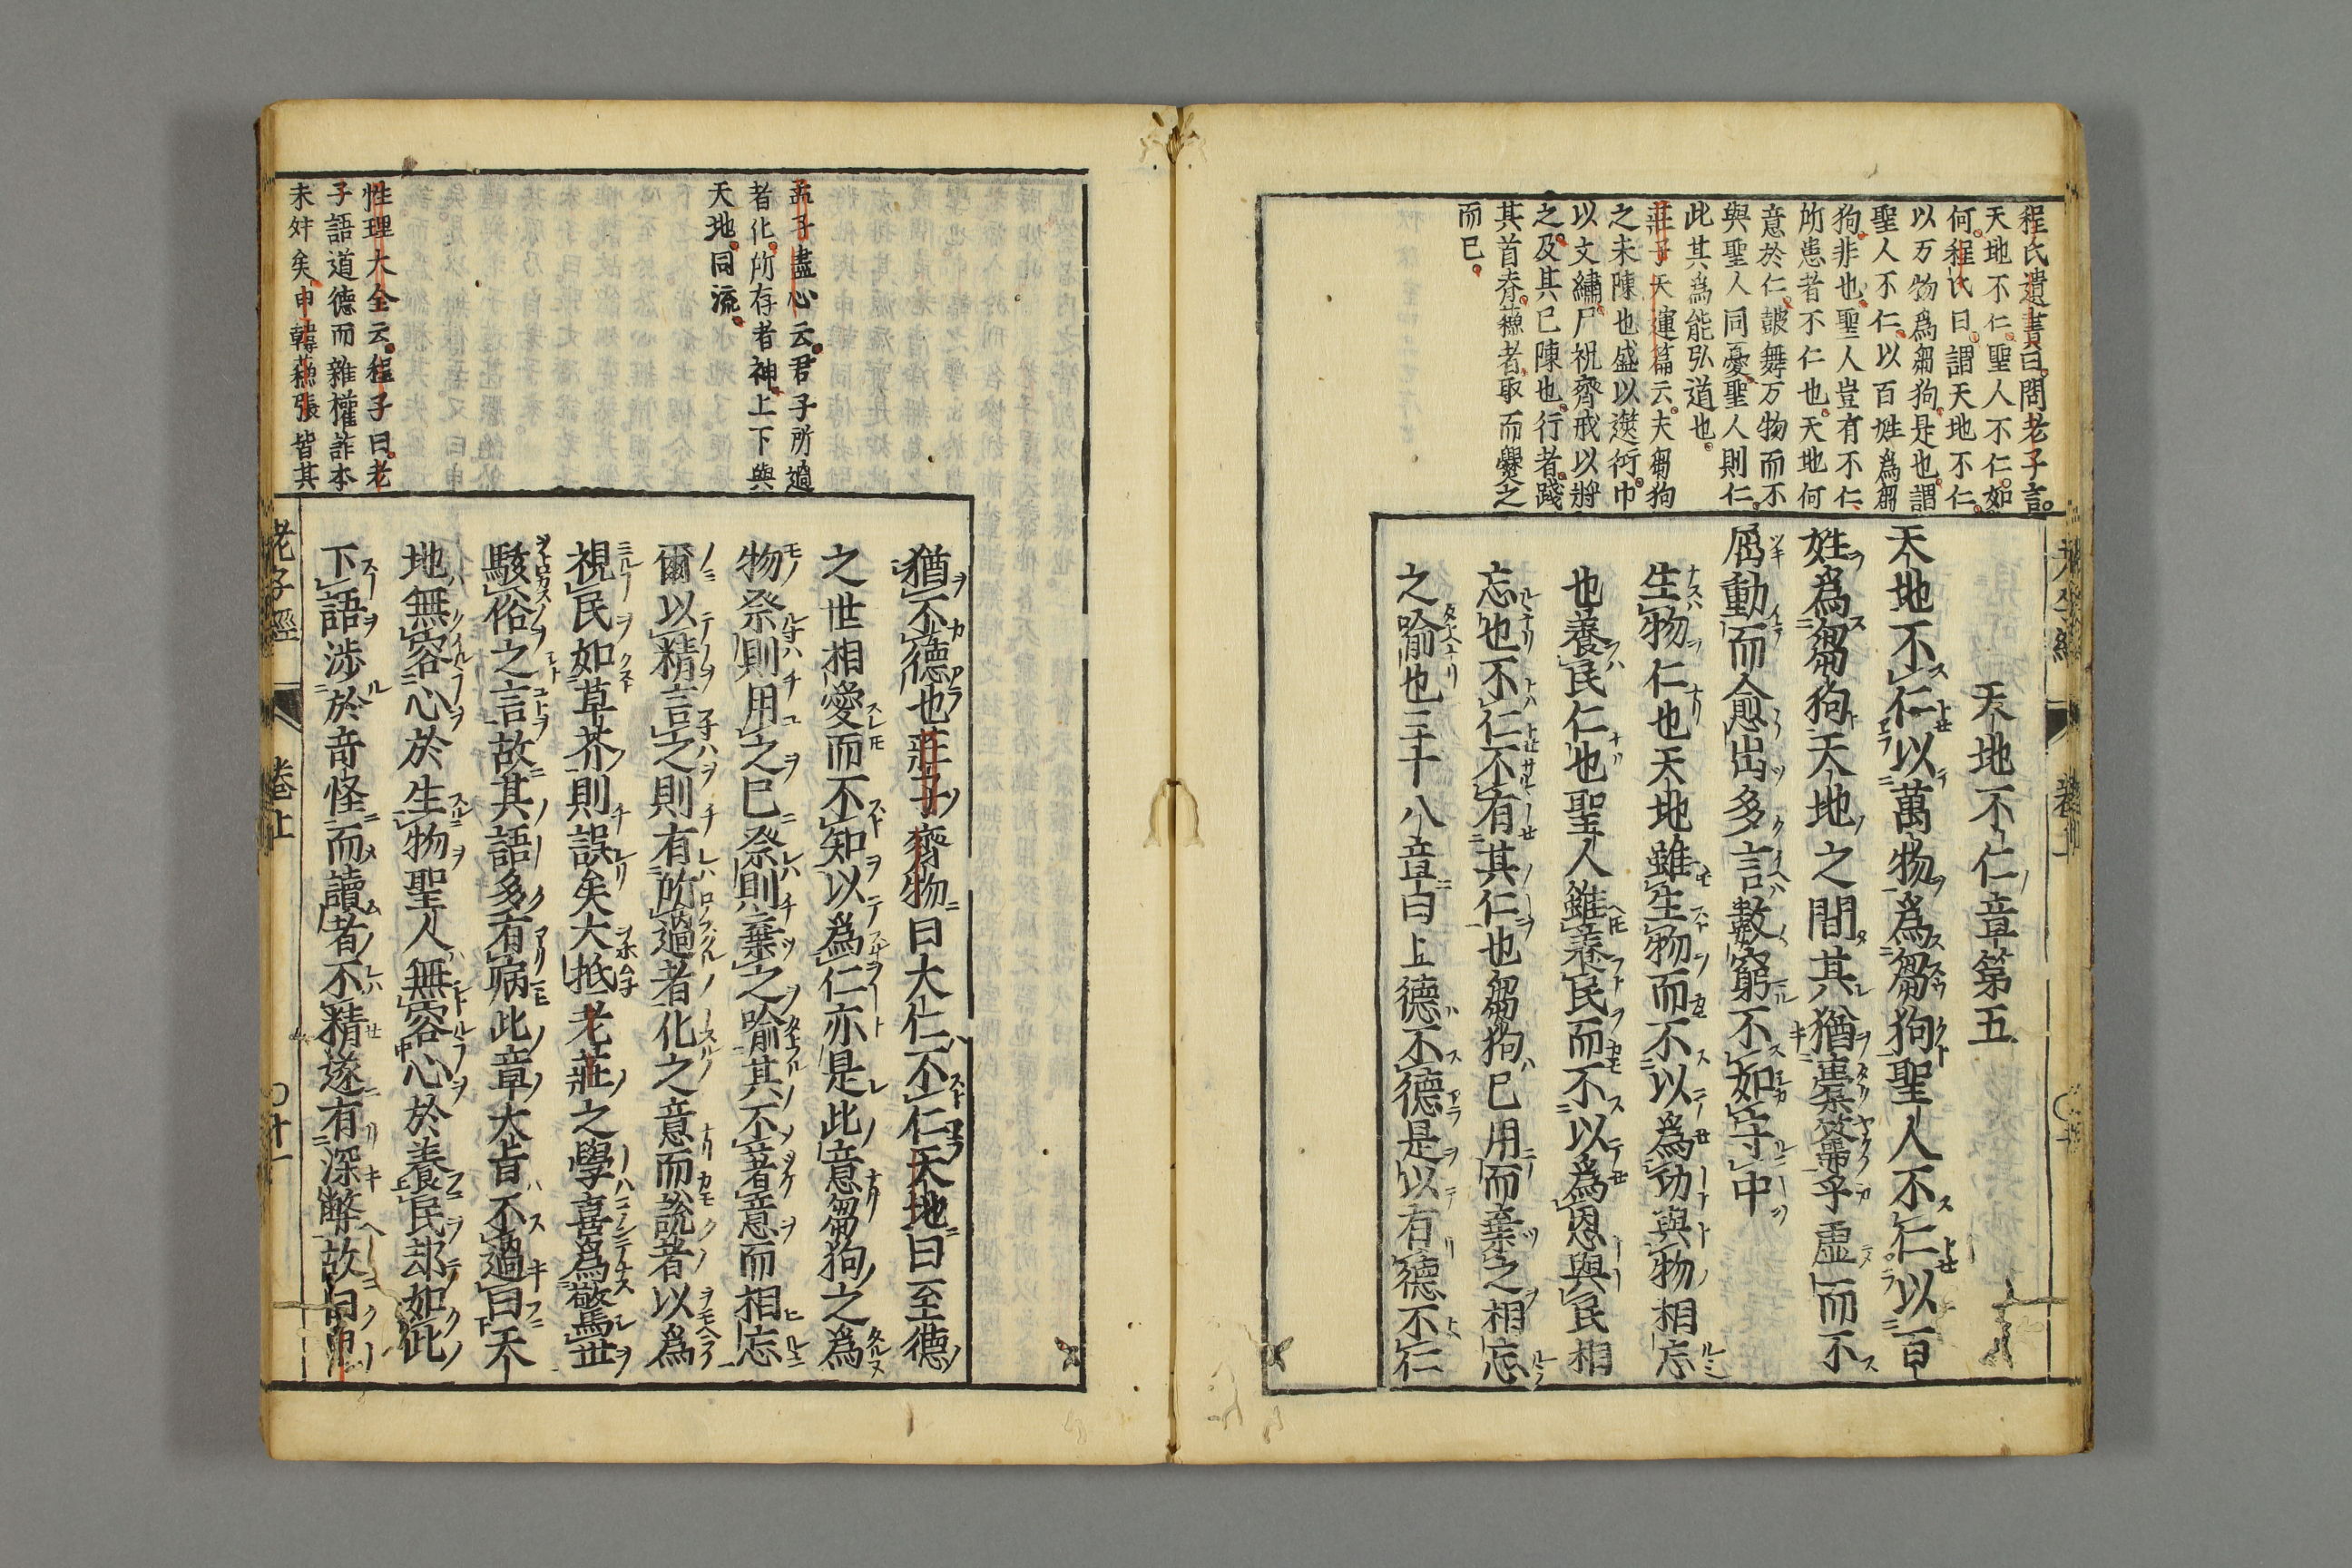 程氏遺書曰問老子言
天地不仁聖人不仁如
何程氏曰謂天地不仁
以万物為芻狗是也謂
聖人不仁以百姓為芻
狗非也聖人豈有不仁
所患者不仁也天地何
意於仁皷舞万物而不
與聖人同憂聖人則仁
此其為能弘道也
莊子天運篇云夫芻狗
之未陳也盛以篋衍巾
以文繡尸祝齊戒以將
之及其已陳也行者踐
其首脊蘇者取而爨之
而已
天地不仁章第五
天地不仁以萬物為芻狗聖人不仁以百
姓為芻狗天地之間其猶橐籥乎虛而不
屈動而愈出多言數窮不如守中
生物仁也天地雖生物而不以為功與物相忘
也養民仁也聖人雖養民而不以為恩與民相
忘也不仁不有其仁也芻狗已用而棄之相忘
之喻也三十八章曰上德不德是以有德不仁
孟子盡心云君子所過
者化所存者神上下與
天地同流
性理大全云程子曰老
子語道德而雜權詐本
末舛矣申韓蘇張皆其
猶不德也莊子齊物曰大仁不仁天地曰至德
之世相愛而不知以為仁亦是此意芻狗之為
物祭則用之已祭則棄之喻其不著意而相忘
爾以精言之則有所過者化之意而說者以為
視民如草芥則誤矣大抵老莊之學喜為驚世
駭俗之言故其語多有病此章大旨不過曰天
地無容心於生物聖人無容心於養民却如此
下語涉於奇怪而讀者不精遂有深弊故曰申
老子經 卷上 〇十一